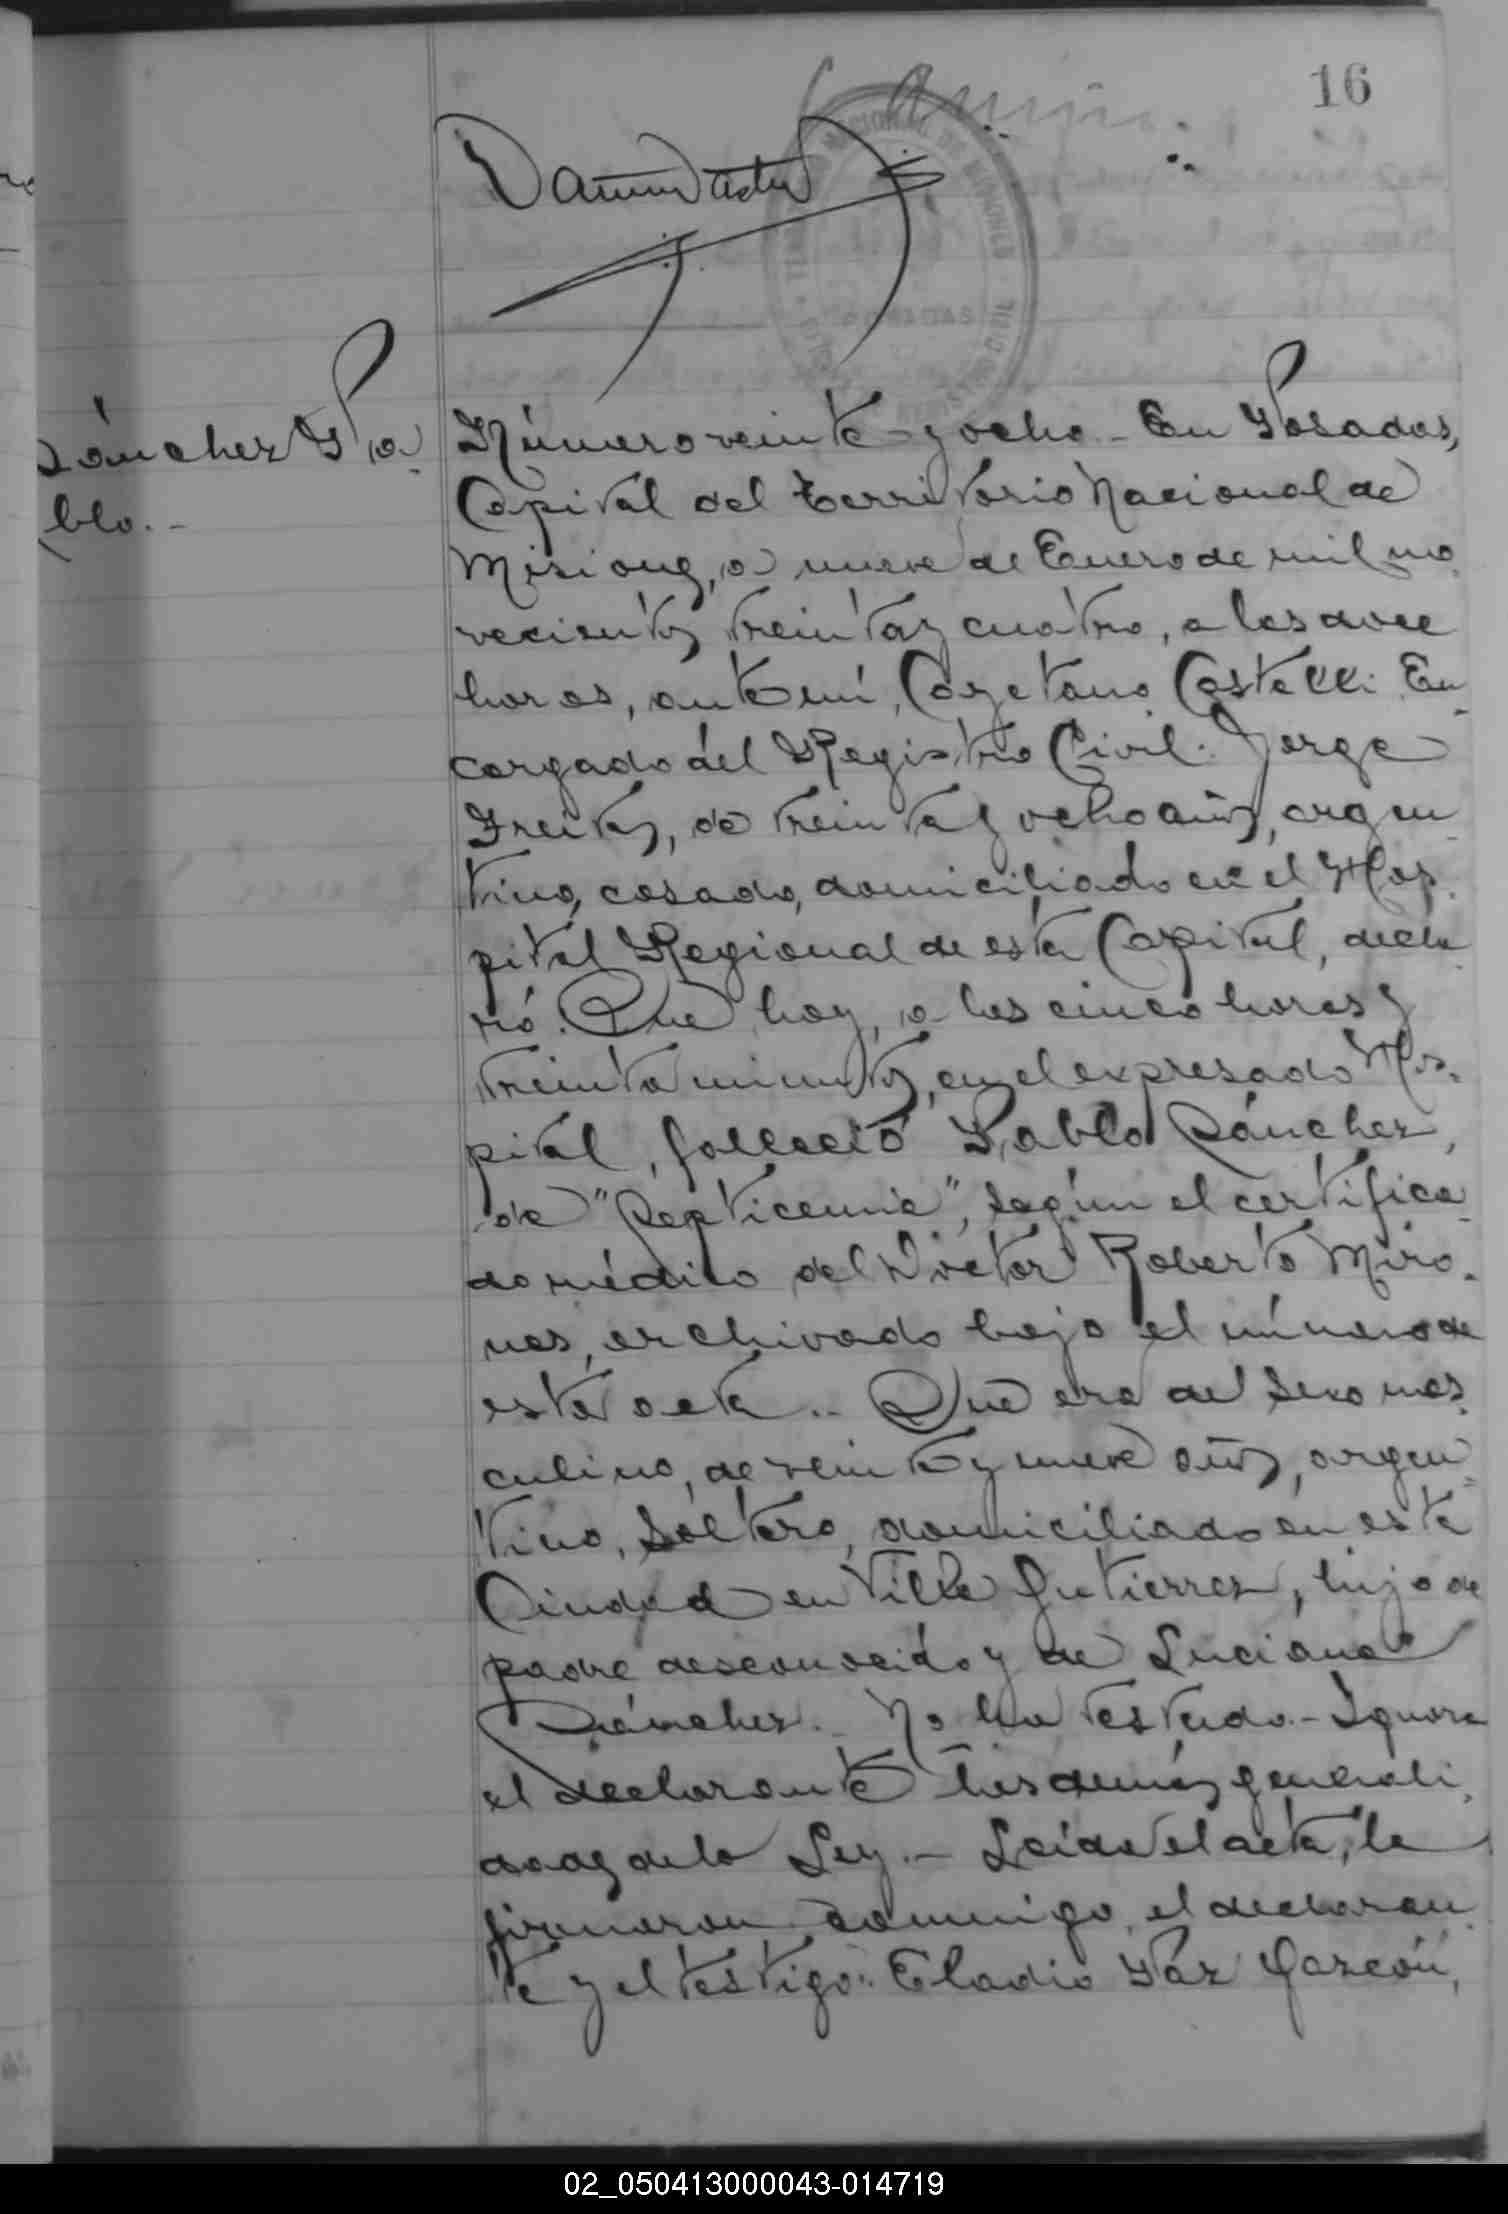 16
TERRITORIO NACIONAL DE MISIONES
POSADAS
REGISTRO CIVIL
Sánchez Pa-
blo.-
Número veinte y ocho.- En Posadas,
Capital del Territorio Nacional de
Misiones, a nueve de Enero de mil no-
vecientos treinta y cuatro, a las doce
horas, ante mí, Cayetano Castelli En-
cargado del Registro Civil. Jorge
Freitas, de treinta y ocho años, argen-
tino, casado, domiciliado en el Hos-
pital Regional de esta Capital, decla-
ró. Que hoy, a las cinco horas y
treinta minutos, en el expresado Hos-
pital, falleció Pablo Sánchez,
de "Septicemia", según el certifica-
do médico del Doctor Roberto Miro-
nes, archivado bajo el número de
esta acta.- Que era del sexo mas-
culino, de veinte y nueve años, argen-
tino, soltero, domiciliado en esta
Ciudad en Villa Gutierrez, hijo de
padre desconocido y de Luciana
Sánchez.- No ha testado.- Ignora
el declarante las demás generali-
dades de la Ley.- Leída el acta, la
firmaron conmigo, el declaran-
te y el testigo: Eladio Paz Garzón,
02_050413000043-014719